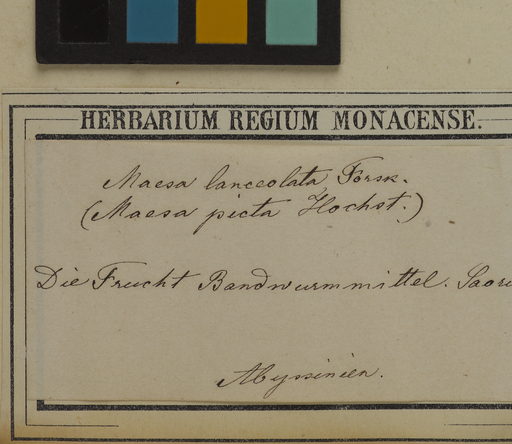 HERBARIUM REGIUM MONACENSE.
Maesa lanceolata Forsk.
(Maesa picta Hochst.)
Die Frucht Bandwurmmittel. Saori
Abyssinien.